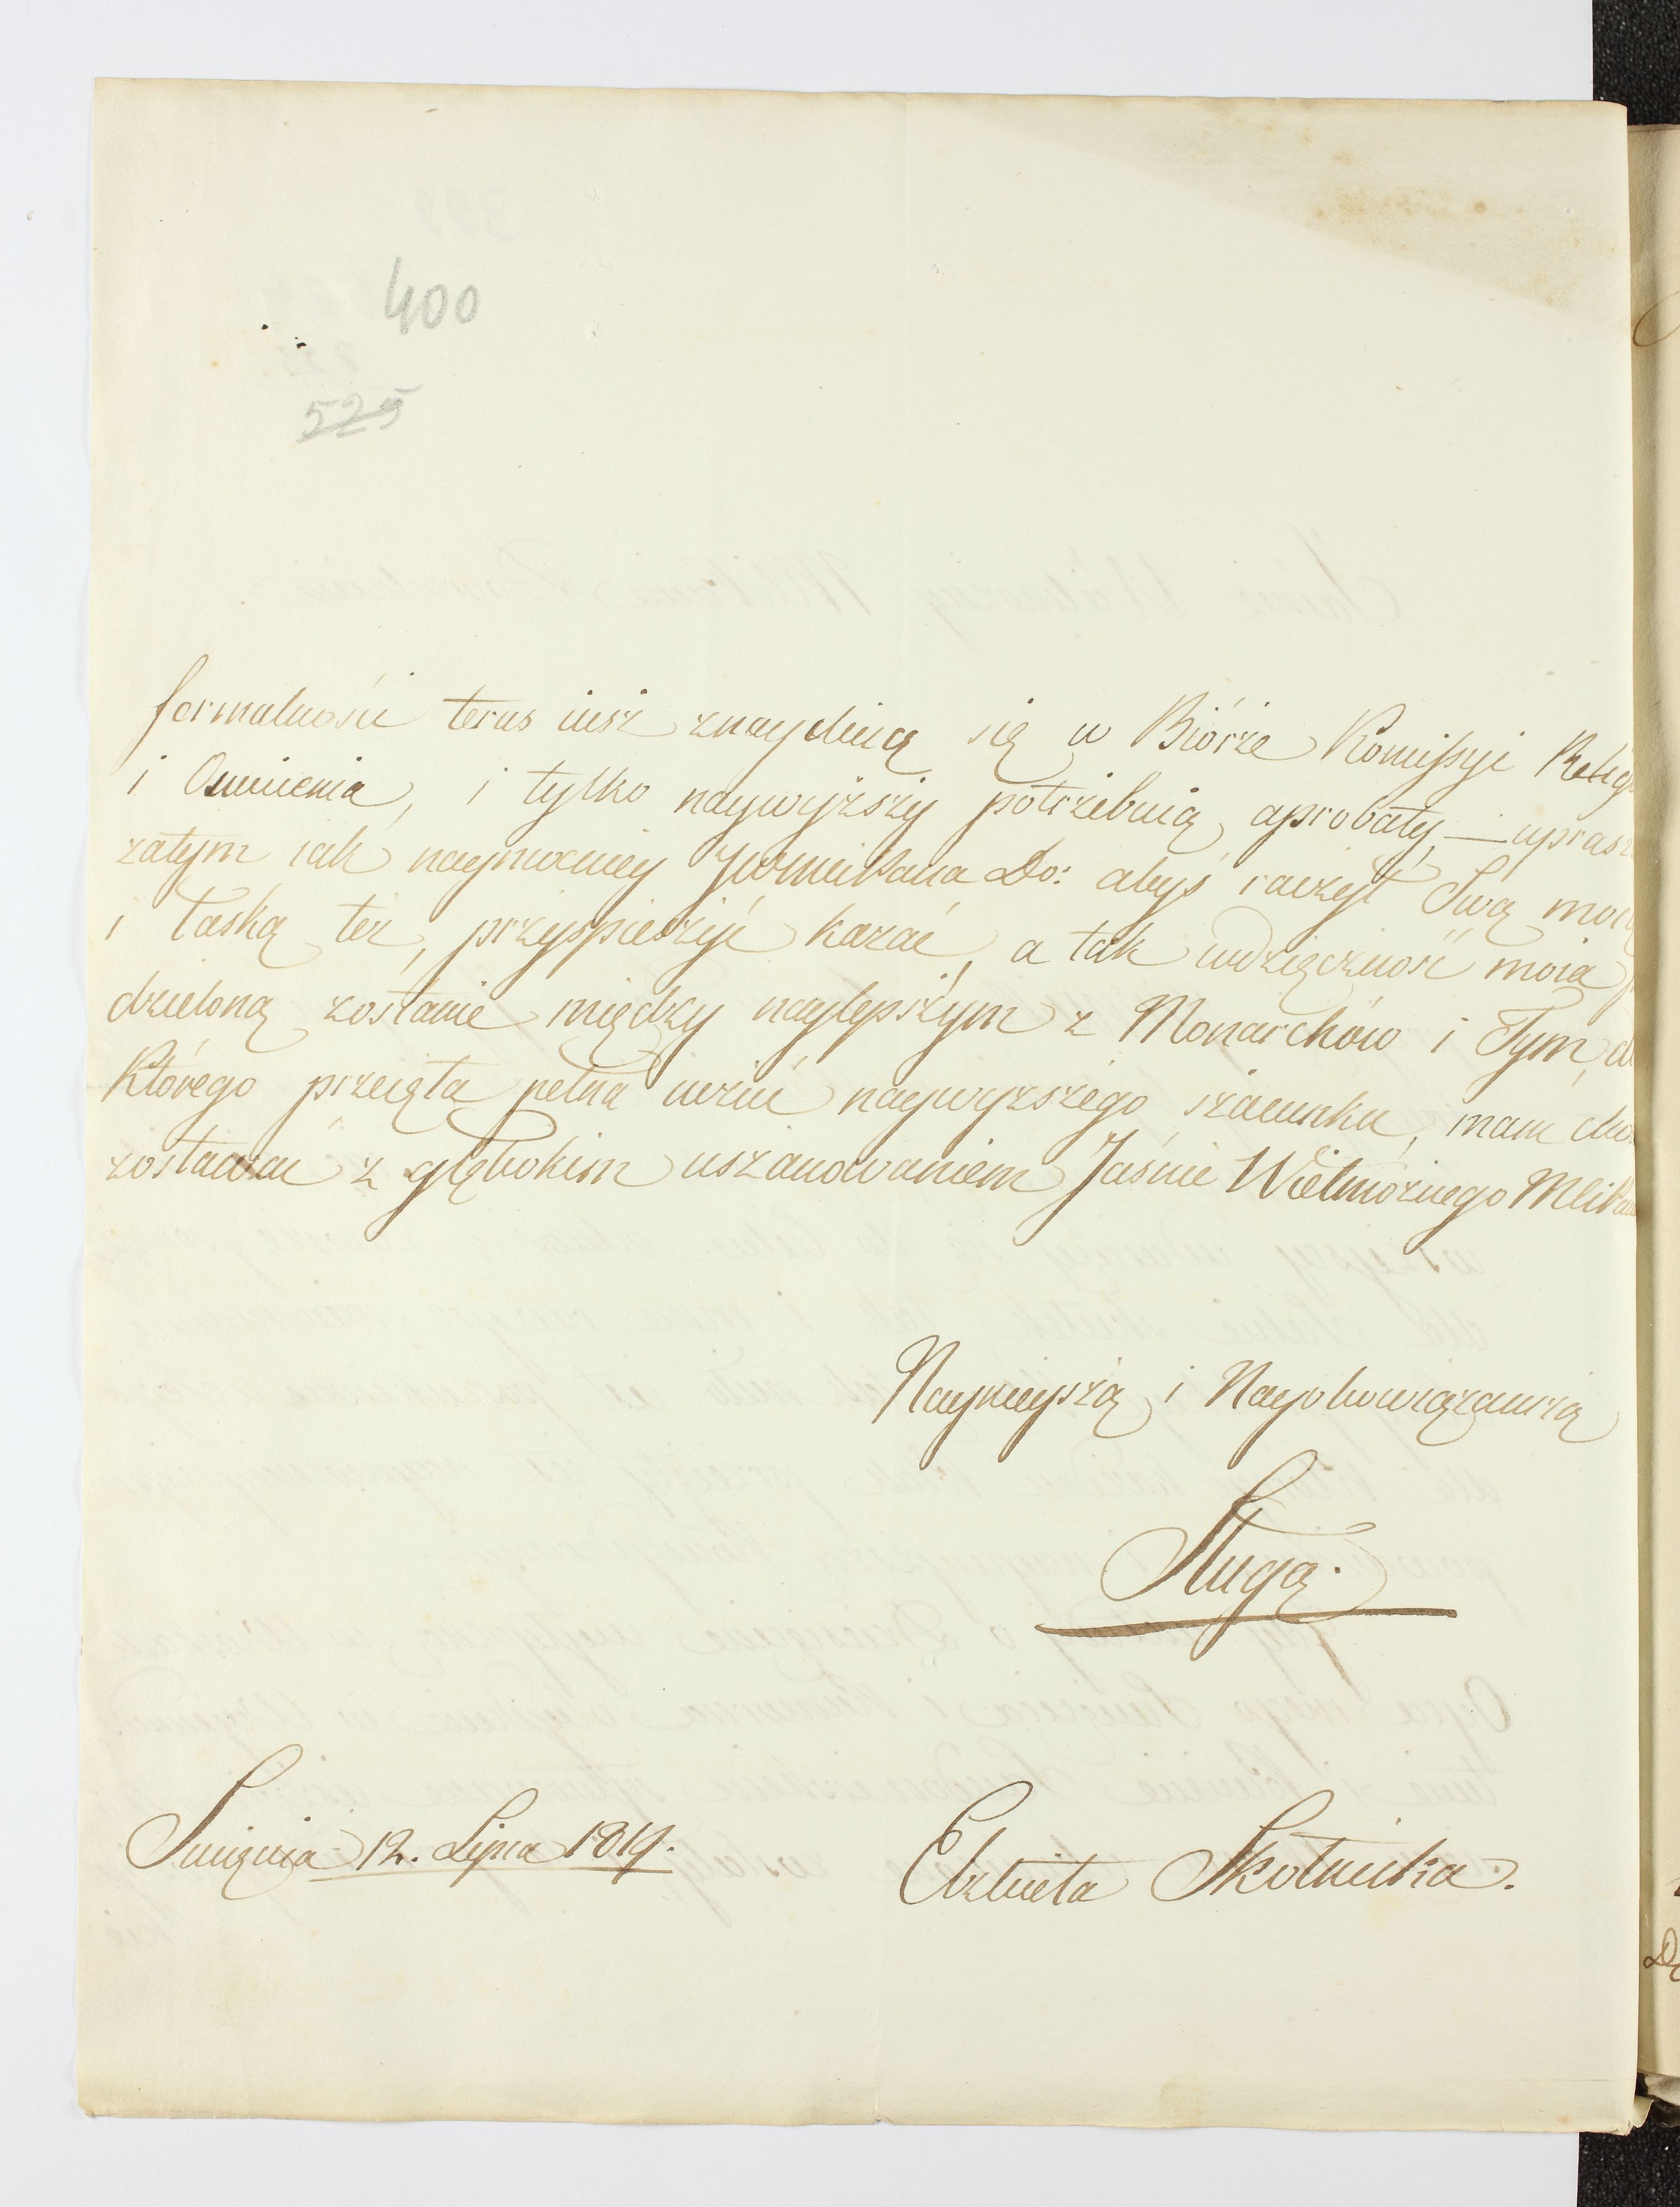 400
525
formalności teras iusz znayduią się w Biórże Komissyi Relig
i Oswiecenia, i tylko naywyższy potrżebuią aprobaty,— uprasz
zatym iak naymocniey JWWMciPana Do: abyś raczył Swą mocą
i łaską też, przyspieszyć kazać, a tak wdzięczność moia
dzieloną zostanie między naylepszym z Monarchów i Tym, d
Którego przeięta pełna uczuć naywyższego szacunku, mam
zostawać z głębokim uszanowaniem Jaśnie Wielmożnego
Nayniższą i Nayobowiązańszą
Sługą.
12. Lipca 1819.
Elżbieta Skotnicka.